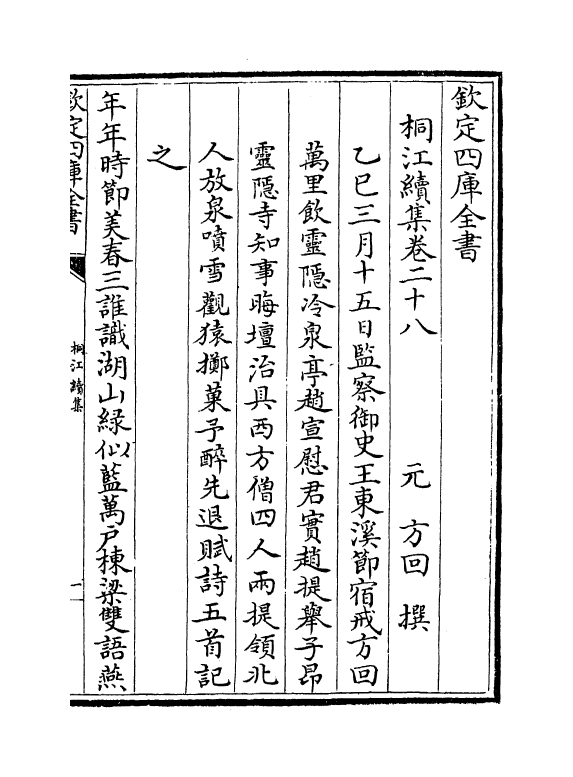 欽定四庫全書
桐江續集卷二十八　　元　方回　撰
乙巳三月十五日監察御史王東溪節宿戒方回
萬里飲靈隱冷泉亭趙宣慰君實趙提舉子昂
靈隱寺知事晦壇治具西方僧四人兩提領北
人放泉噴雪觀猿擲菓予醉先退賦詩五首記
之
年年時節美春三誰識湖山綠似藍萬戶棟梁雙語燕
欽定四庫全書
桐江續集
一